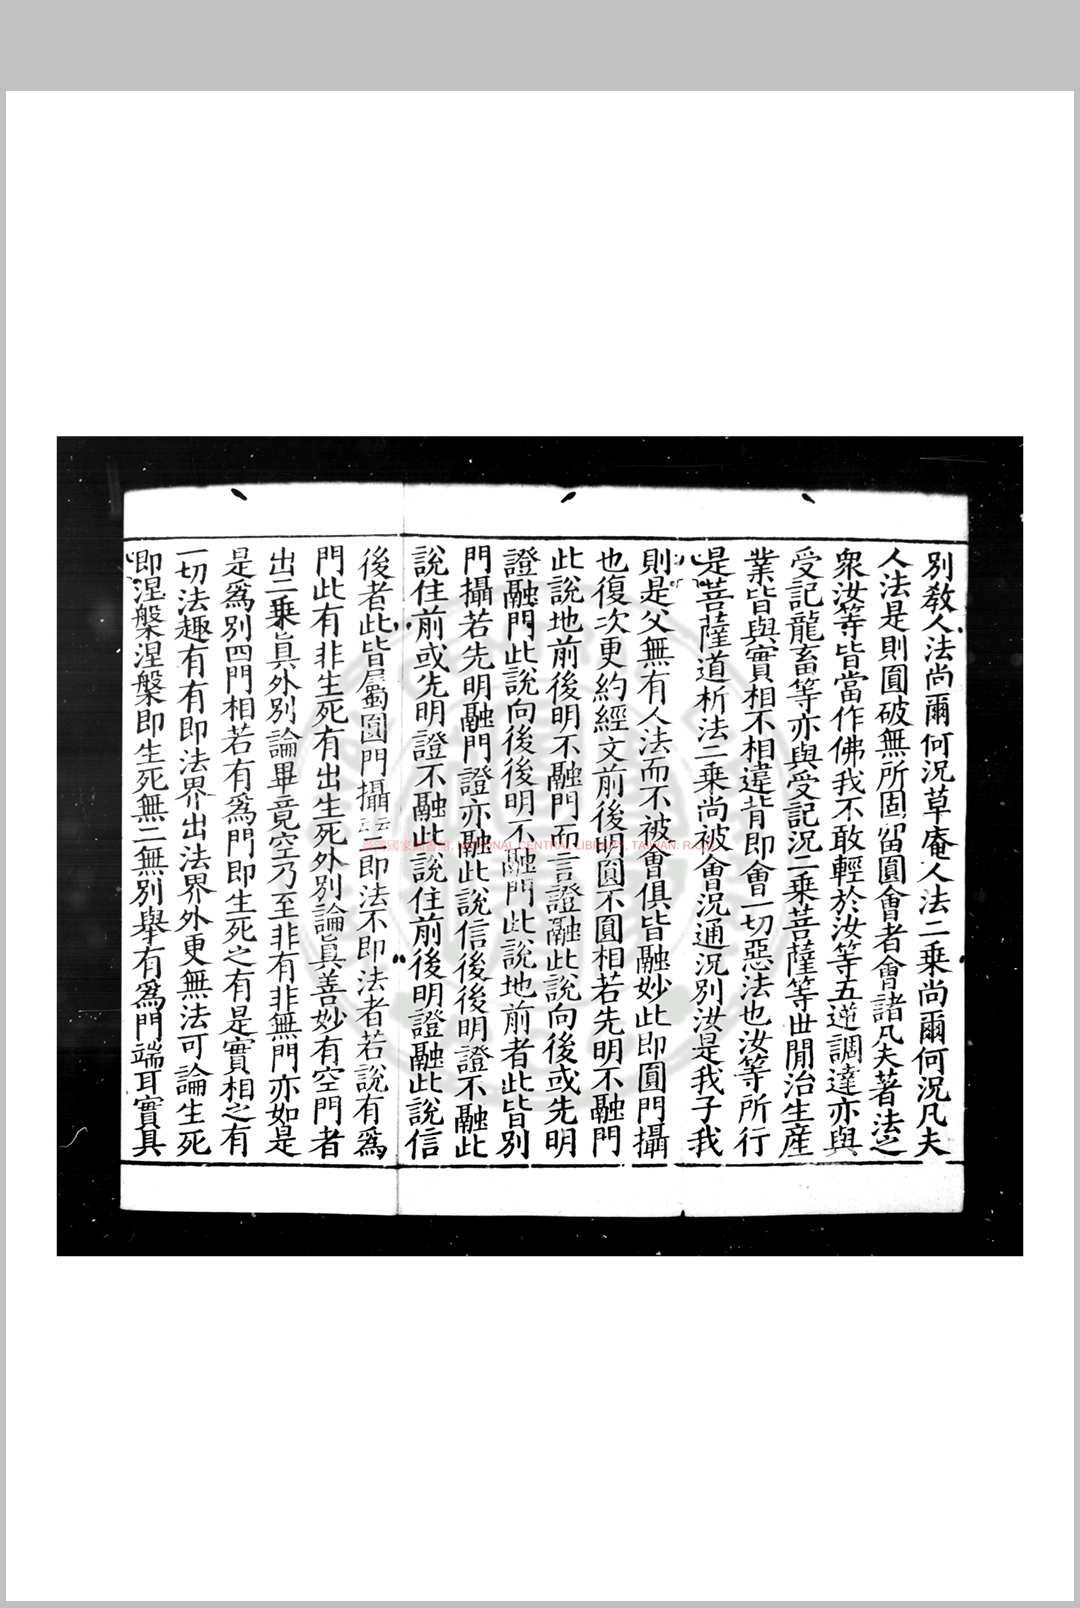 別教人法尚爾何況草庵人法二乘尚爾何況凡夫
人法是則圓破無所固留圓會者會諸凡夫著法之
衆汝等皆當作佛我不敢輕於汝等五逆調達亦與
受記龍畜等亦與受記況二乘菩薩等世閒治生産
業皆與實相不相違背即會一切惡法也汝等所行
是菩薩道析法二乘尚被會況通況別汝是我子我
則是父無有人法而不被會俱皆融妙此即圓門攝
也復次更約經文前後明圓不圓相若先明不融門
此說地前後明不融門而言證融此說向後或先明
證融門此說向後後明不融門此說地前者此皆別
門攝若先明融門證亦融此說信後後明證不融此
說住前或先明證不融此說住前後明證融此說信
後者此皆屬圓門攝云云即法不即法者若說有爲
門此有非生死有出生死外別論眞善妙有空門者
出二乘眞外別論畢竟空乃至非有非無門亦如是
是爲別四門相若有爲門即生死之有是實相之有
一切法趣有有即法界出法界外更無法可論生死
即涅槃涅槃即生死無二無別舉有爲門端耳實具
臺灣國家圖書館, NATIONAL CENTRAL LIBRARY, TAIWAN. R.O.C